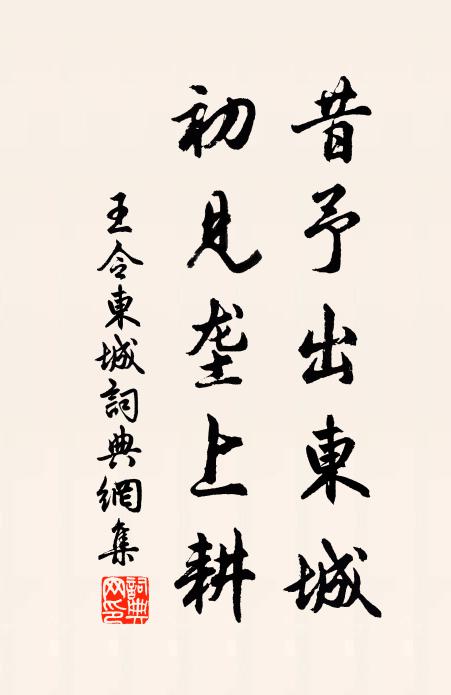 昔予出東城
初見垄上耕
王令東城詞典網集
詞典網印